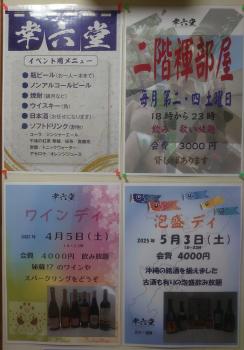 幸六堂
イベント用メニュー
●瓶ビール(お一人一本まで)
●ノンアルコールビール
●焼酎
●ウイスキー(角)
●日本酒
●ソフトドリンク
コーラ・ジンジャーエール
幸六堂
二階褌部屋
毎月第二・四土曜日
18時から23時
飲み・歌い放題
会費 3000円
貸し褌あります
幸六堂
ワインデイ
4月5日(土)
会費 4000円 飲み放題
秘蔵!?のワインや
スパークリングをどうぞ
幸六堂
泡盛デイ
2025年 5月3日(土)
会費 4000円
沖縄の銘酒を揃えました
古酒も有りの泡盛飲み放題
幸六堂